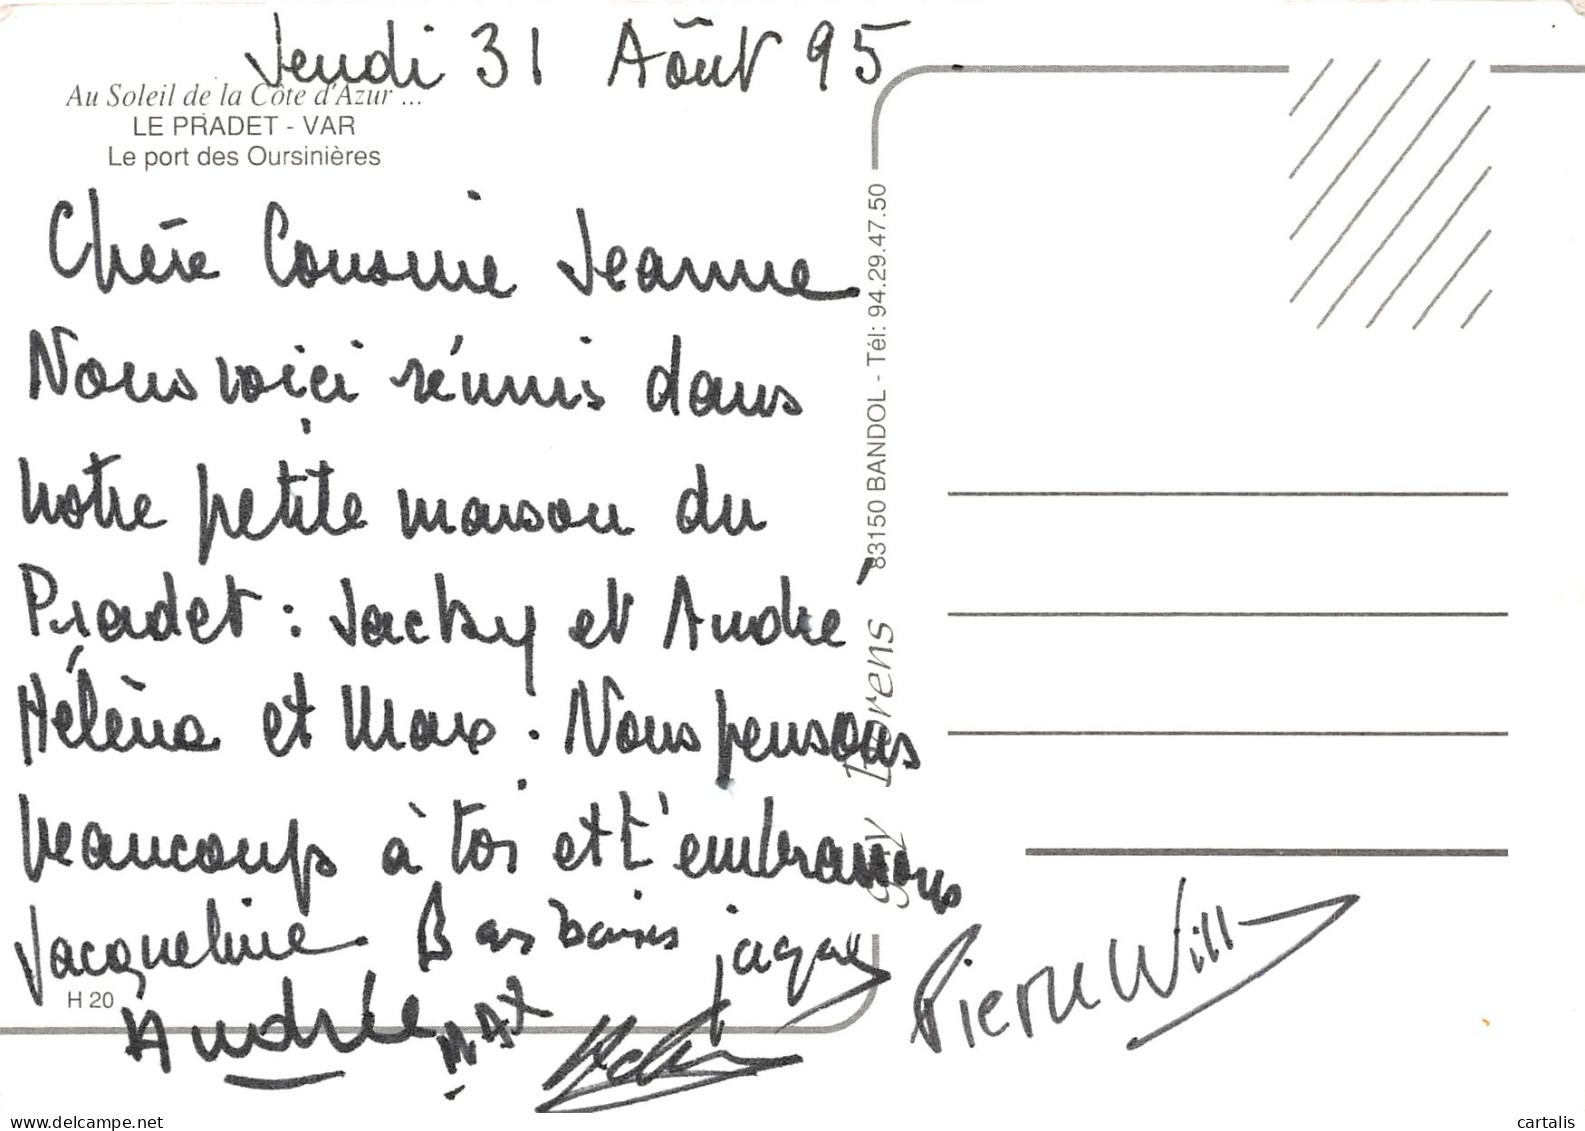 Jeudi 31 Août 95
Au Soleil de la Côte d'Azur ...
LE PRADET - VAR
Le port des Oursinières
Chère Cousine Jeanne
Nous voici réunis dans
notre petite maison du
Pradet : Jacky et André
Hélène et Max. Nous pensons
beaucoup à toi et t'embrassons
Jacqueline. Bons baisers
André
MAX
Pierre Will
H 20
83150 BANDOL - Tél: 94.29.47.50
www.delcampe.net
cartalis